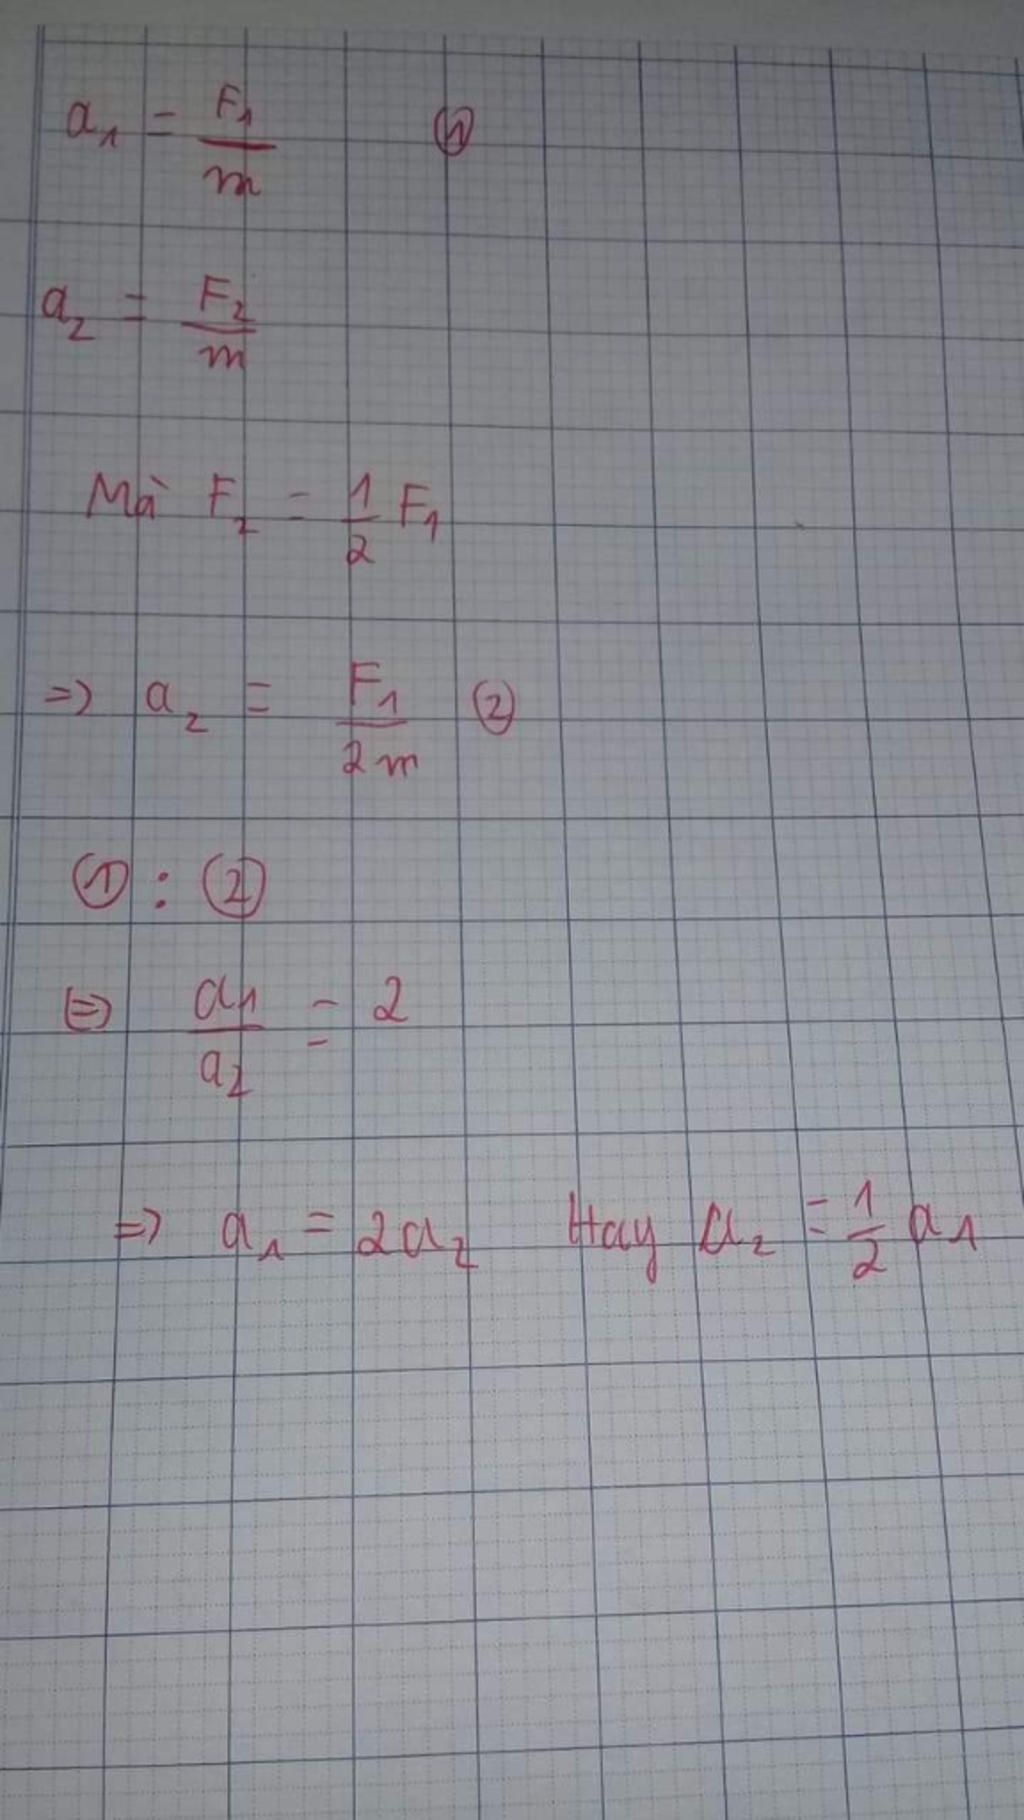 a₁ = F₁/m ①
a₂ = F₂/m
Mà F₂ = 1/2 F₁
=> a₂ = F₁/2m ②
① : ②
<=> a₁/a₂ = 2
=> a₁ = 2a₂ Hay a₂ = 1/2 a₁